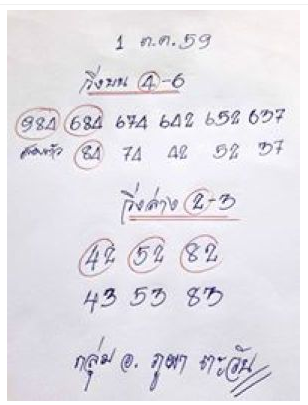 1 ต.ค.59
วิ่งบน 4-6
984 684 674 642 652 637
สองตัว 84 74 42 52 37
วิ่งล่าง 2-3
42 52 82
43 53 83
กลุ่ม อ. ภูผา ตะวัน